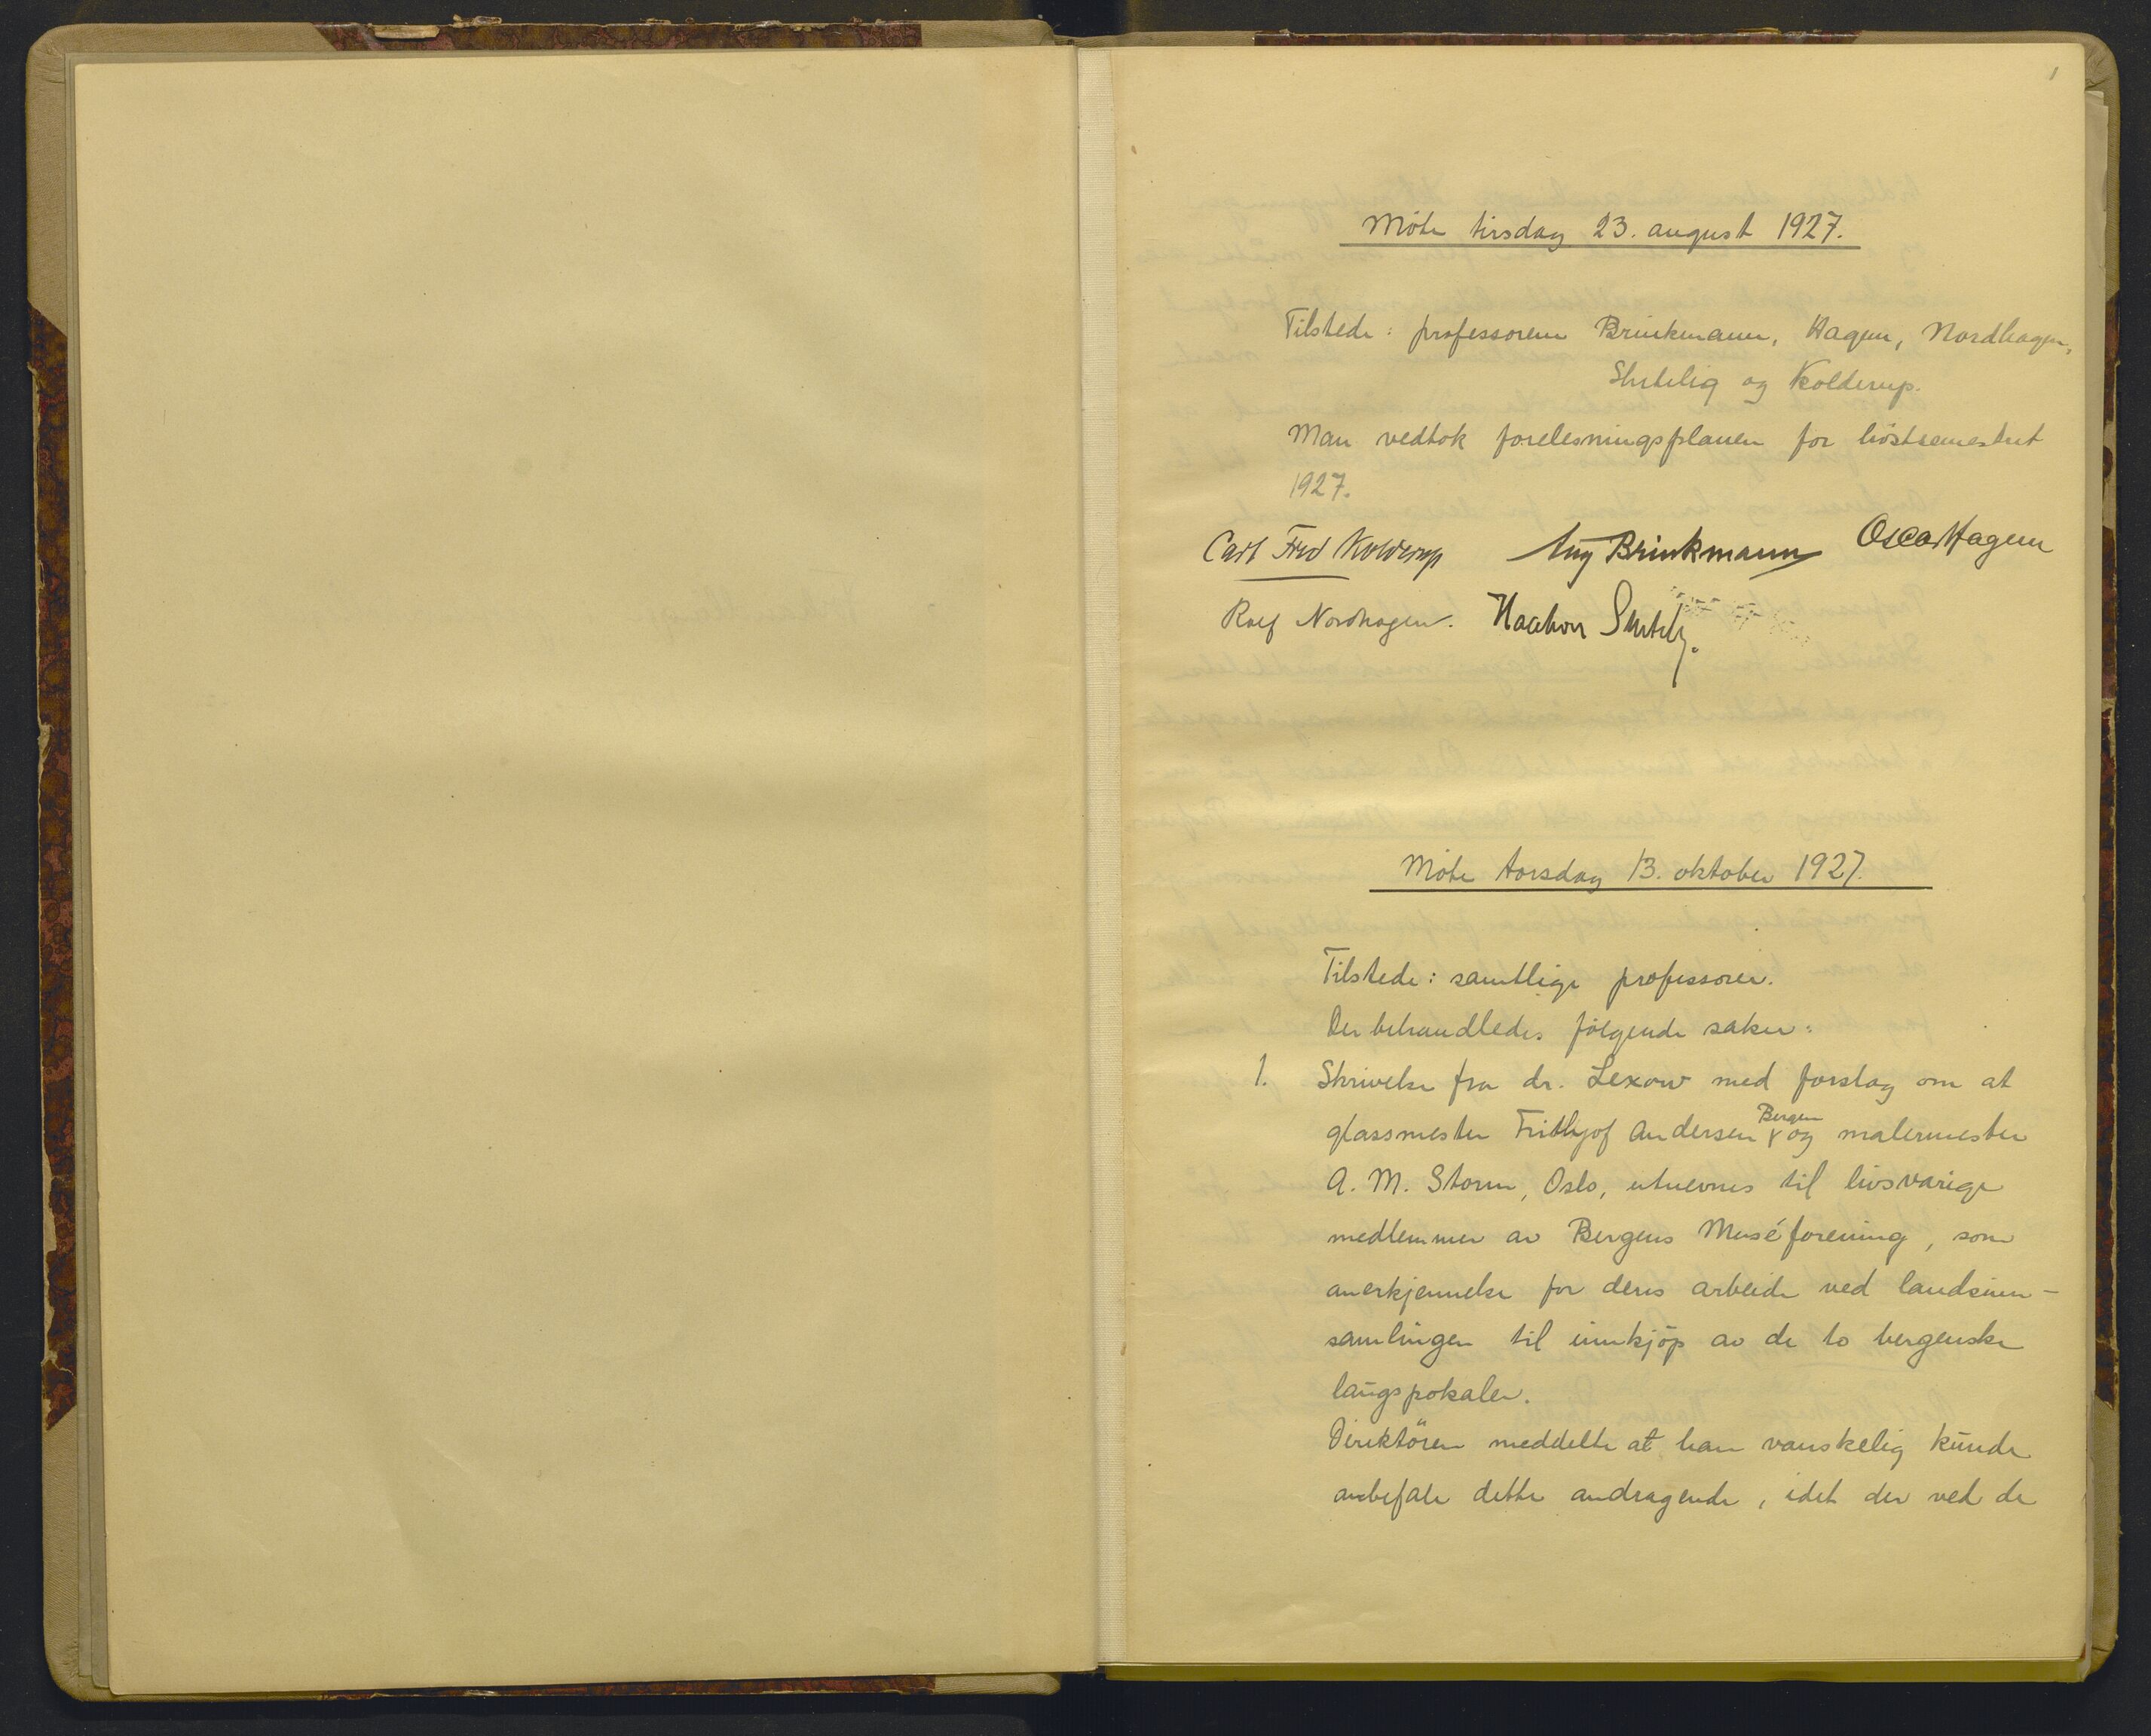 1
Møte tirsdag 23. august 1927.
Tilstede: professorene Brinkmann, Hagem, Nordhagen,
Shetelig og Kolderup.
Man vedtok forelesningsplanen for høstsemestret
1927.
Carl Fred Kolderup Aug Brinkmann Oscar Hagem
Rolf Nordhagen. Haakon Shetelig.
Møte torsdag 13. oktober 1927.
Tilstede: samtlige professorer.
Der behandledes følgende saker:
1. Skrivelse fra dr. Lexow med forslag om at
glassmester Frithjof Andersen Bergen og malermester
A. M. Storm, Oslo, utnevnes til livsvarige
medlemmer av Bergens Muséforening, som
anerkjennelse for deres arbeide ved landsinn-
samlingen til innkjøp av de to bergenske
laugspokaler.
Direktøren meddelte at han vanskelig kunde
anbefale dette andragende, idet der ved de